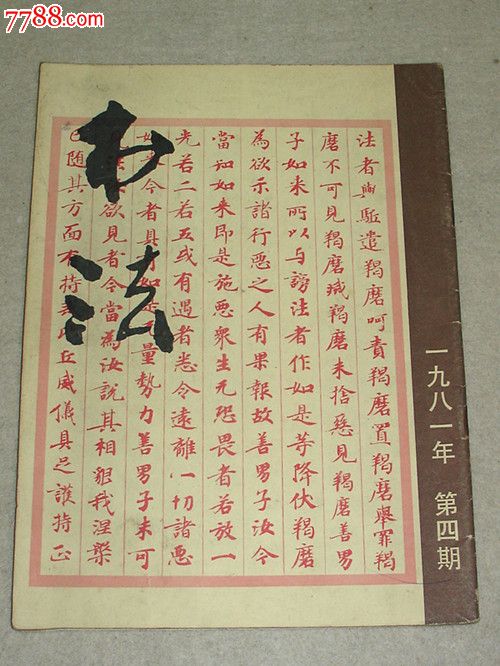 7788.com
中国收藏热线
书法
法者與駈遣羯磨呵責羯磨置羯磨舉罪羯
磨不可見羯磨滅羯磨未捨惡見羯磨善男
子如来所以与謗法者作如是等降伏羯磨
為欲示諸行惡之人有果報故善男子汝今
當知如来即是施惡衆生无恐畏者若放一
光若二若五或有遇者悉令遠離一切諸惡
如来今者具有如是无量勢力善男子未可
法欲見者今當為汝說其相貌我涅槃
已随其方面有持丘威儀具足護持正
一九八一年 第四期